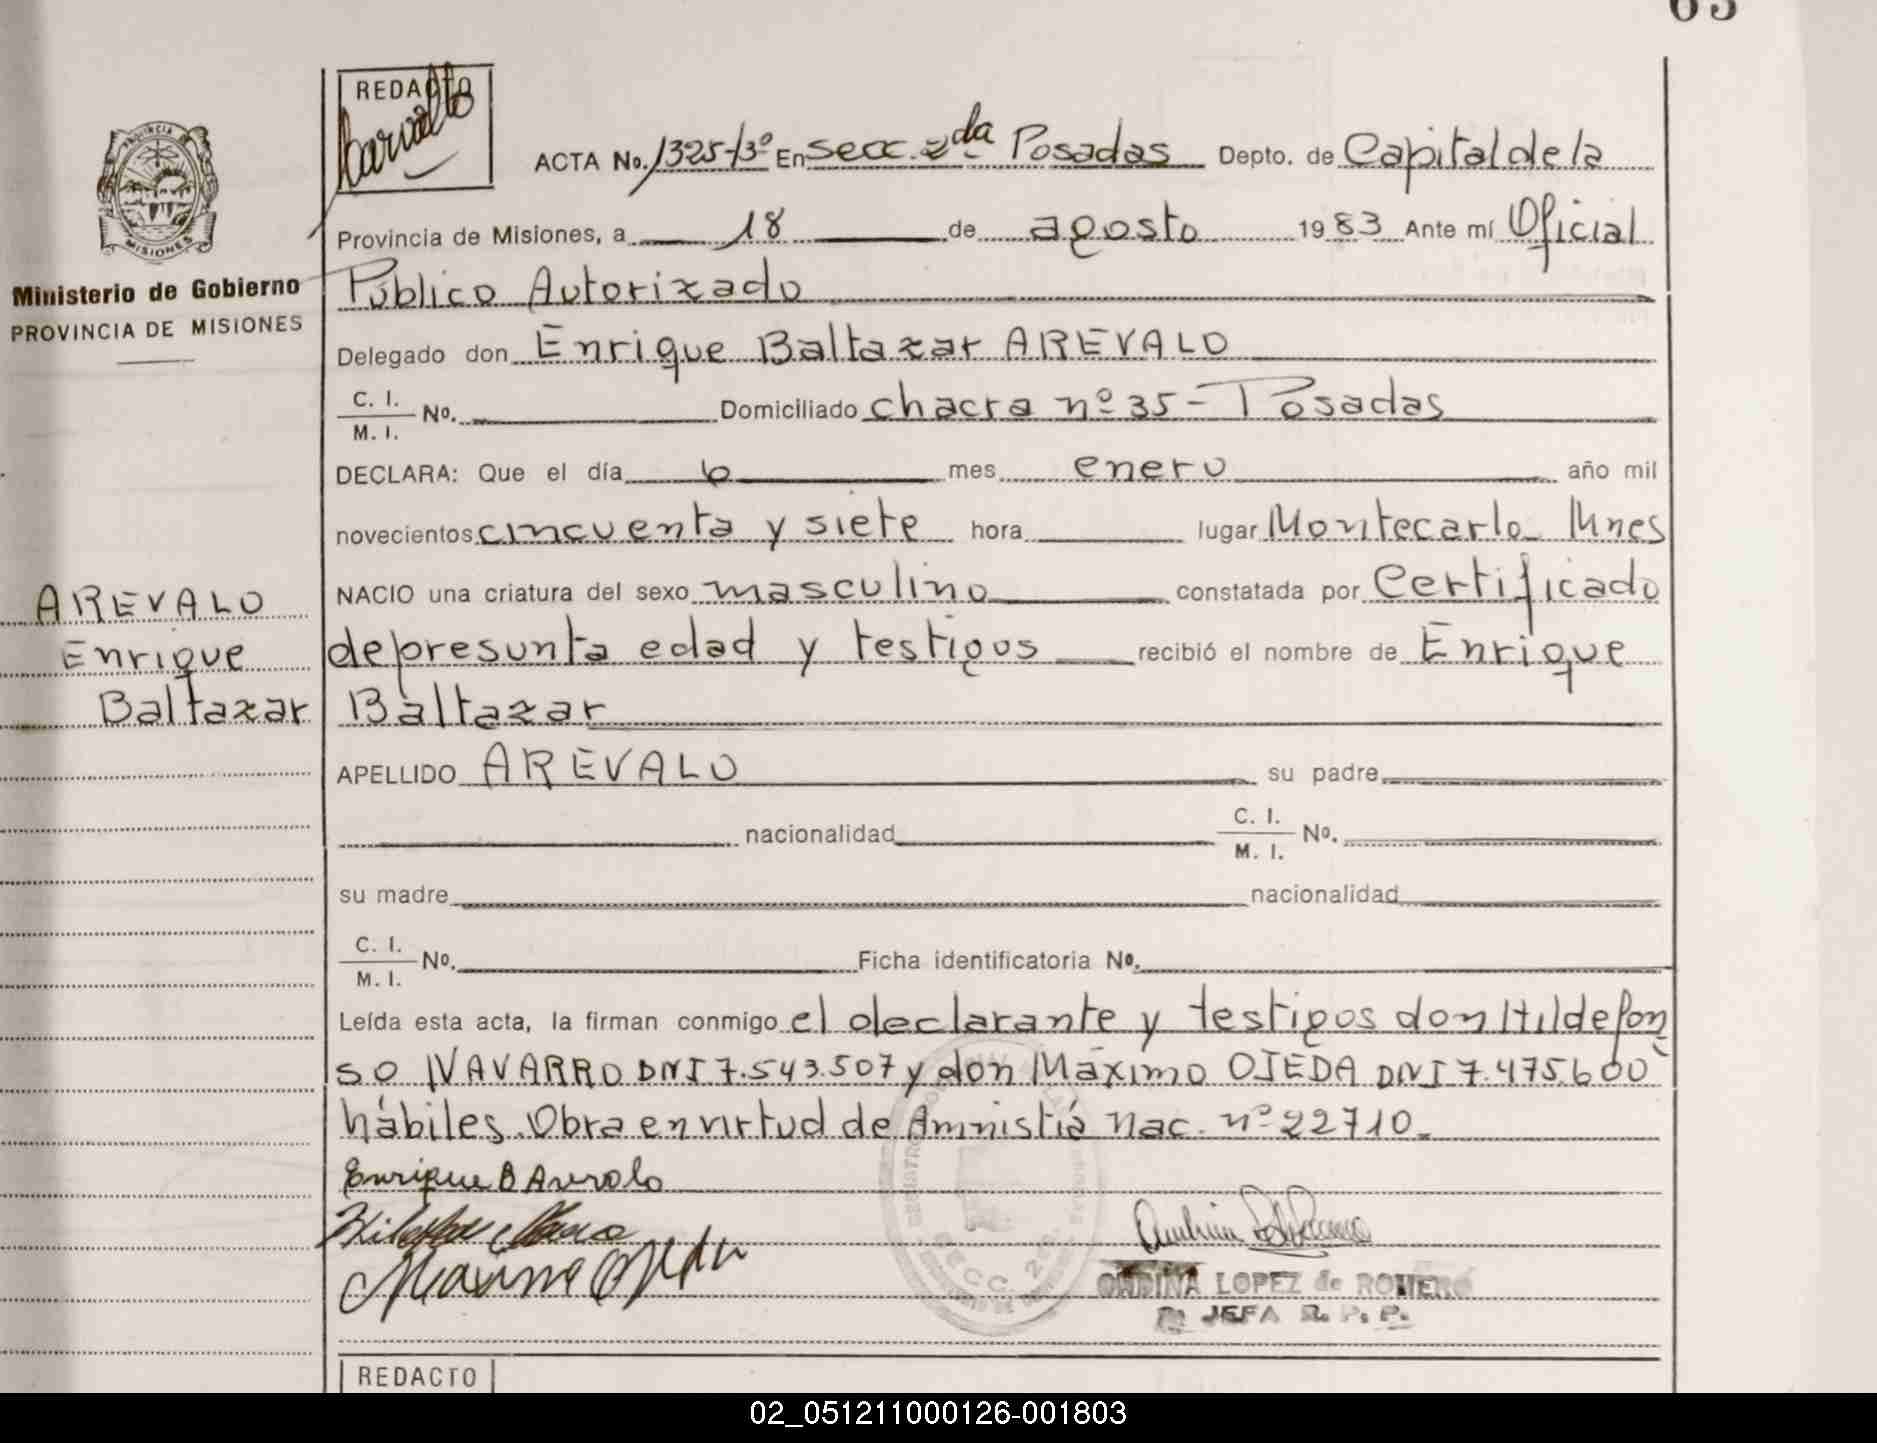 63
REDACTO
Carvallo
ACTA No. 1325-Tº3º En secc. 2da Posadas Depto. de Capital de la
Provincia de Misiones, a 18 de agosto 1983 Ante mí Oficial
Público Autorizado
PROVINCIA
MISIONES
Ministerio de Gobierno
PROVINCIA DE MISIONES
Delegado don Enrique Baltazar AREVALO
C. I.
M. I. No. Domiciliado chacra nº 35 - Posadas
DECLARA: Que el día 6 mes enero año mil
novecientos cincuenta y siete hora lugar Montecarlo Mnes
NACIO una criatura del sexo masculino constatada por Certificado
de presunta edad y testigos recibió el nombre de Enrique
Baltazar
AREVALO
Enrique
Baltazar
APELLIDO AREVALO su padre
nacionalidad C. I.
M. I. No.
su madre nacionalidad
C. I.
M. I. No. Ficha identificatoria No.
Leída esta acta, la firman conmigo el declarante y testigos don Hildefon
so NAVARRO DNI 7.543.507 y don Máximo OJEDA DNI 7.475.600
hábiles. Obra en virtud de Amnistiá Nac. nº 22710.
Enrique B Arevalo
Maximo Ojeda
SECC. 2da.
ONDINA LOPEZ de ROMERO
JEFA R. P. P.
REDACTO
02_051211000126-001803